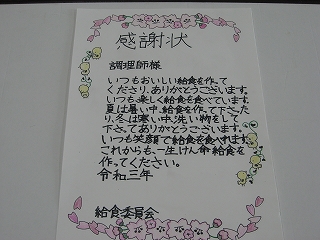 感謝状
調理師様
いつもおいしい給食を作って
くださり、ありがとうございます。
いつも楽しく給食を食べています。
夏は暑い中、給食を作って下さった
り、冬は寒い中、洗い物をして
下さってありがとうございます。
いつも笑顔で給食を食べれます。
これからも、一生けん命給食を
作ってください。
令和三年
給食委員会